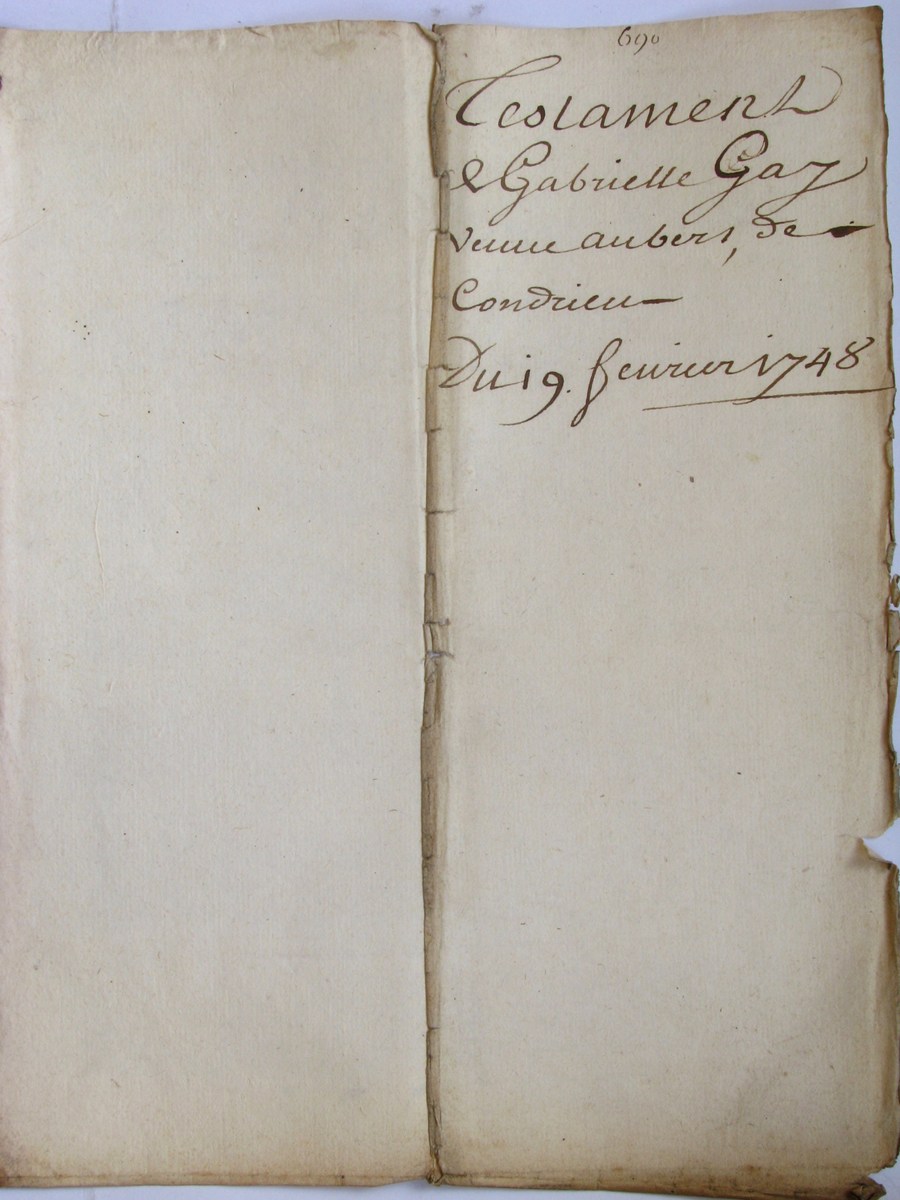 690
Testament
de Gabrielle Gay
veuve aubert, de
Condrieu
Du 19. fevrier 1748